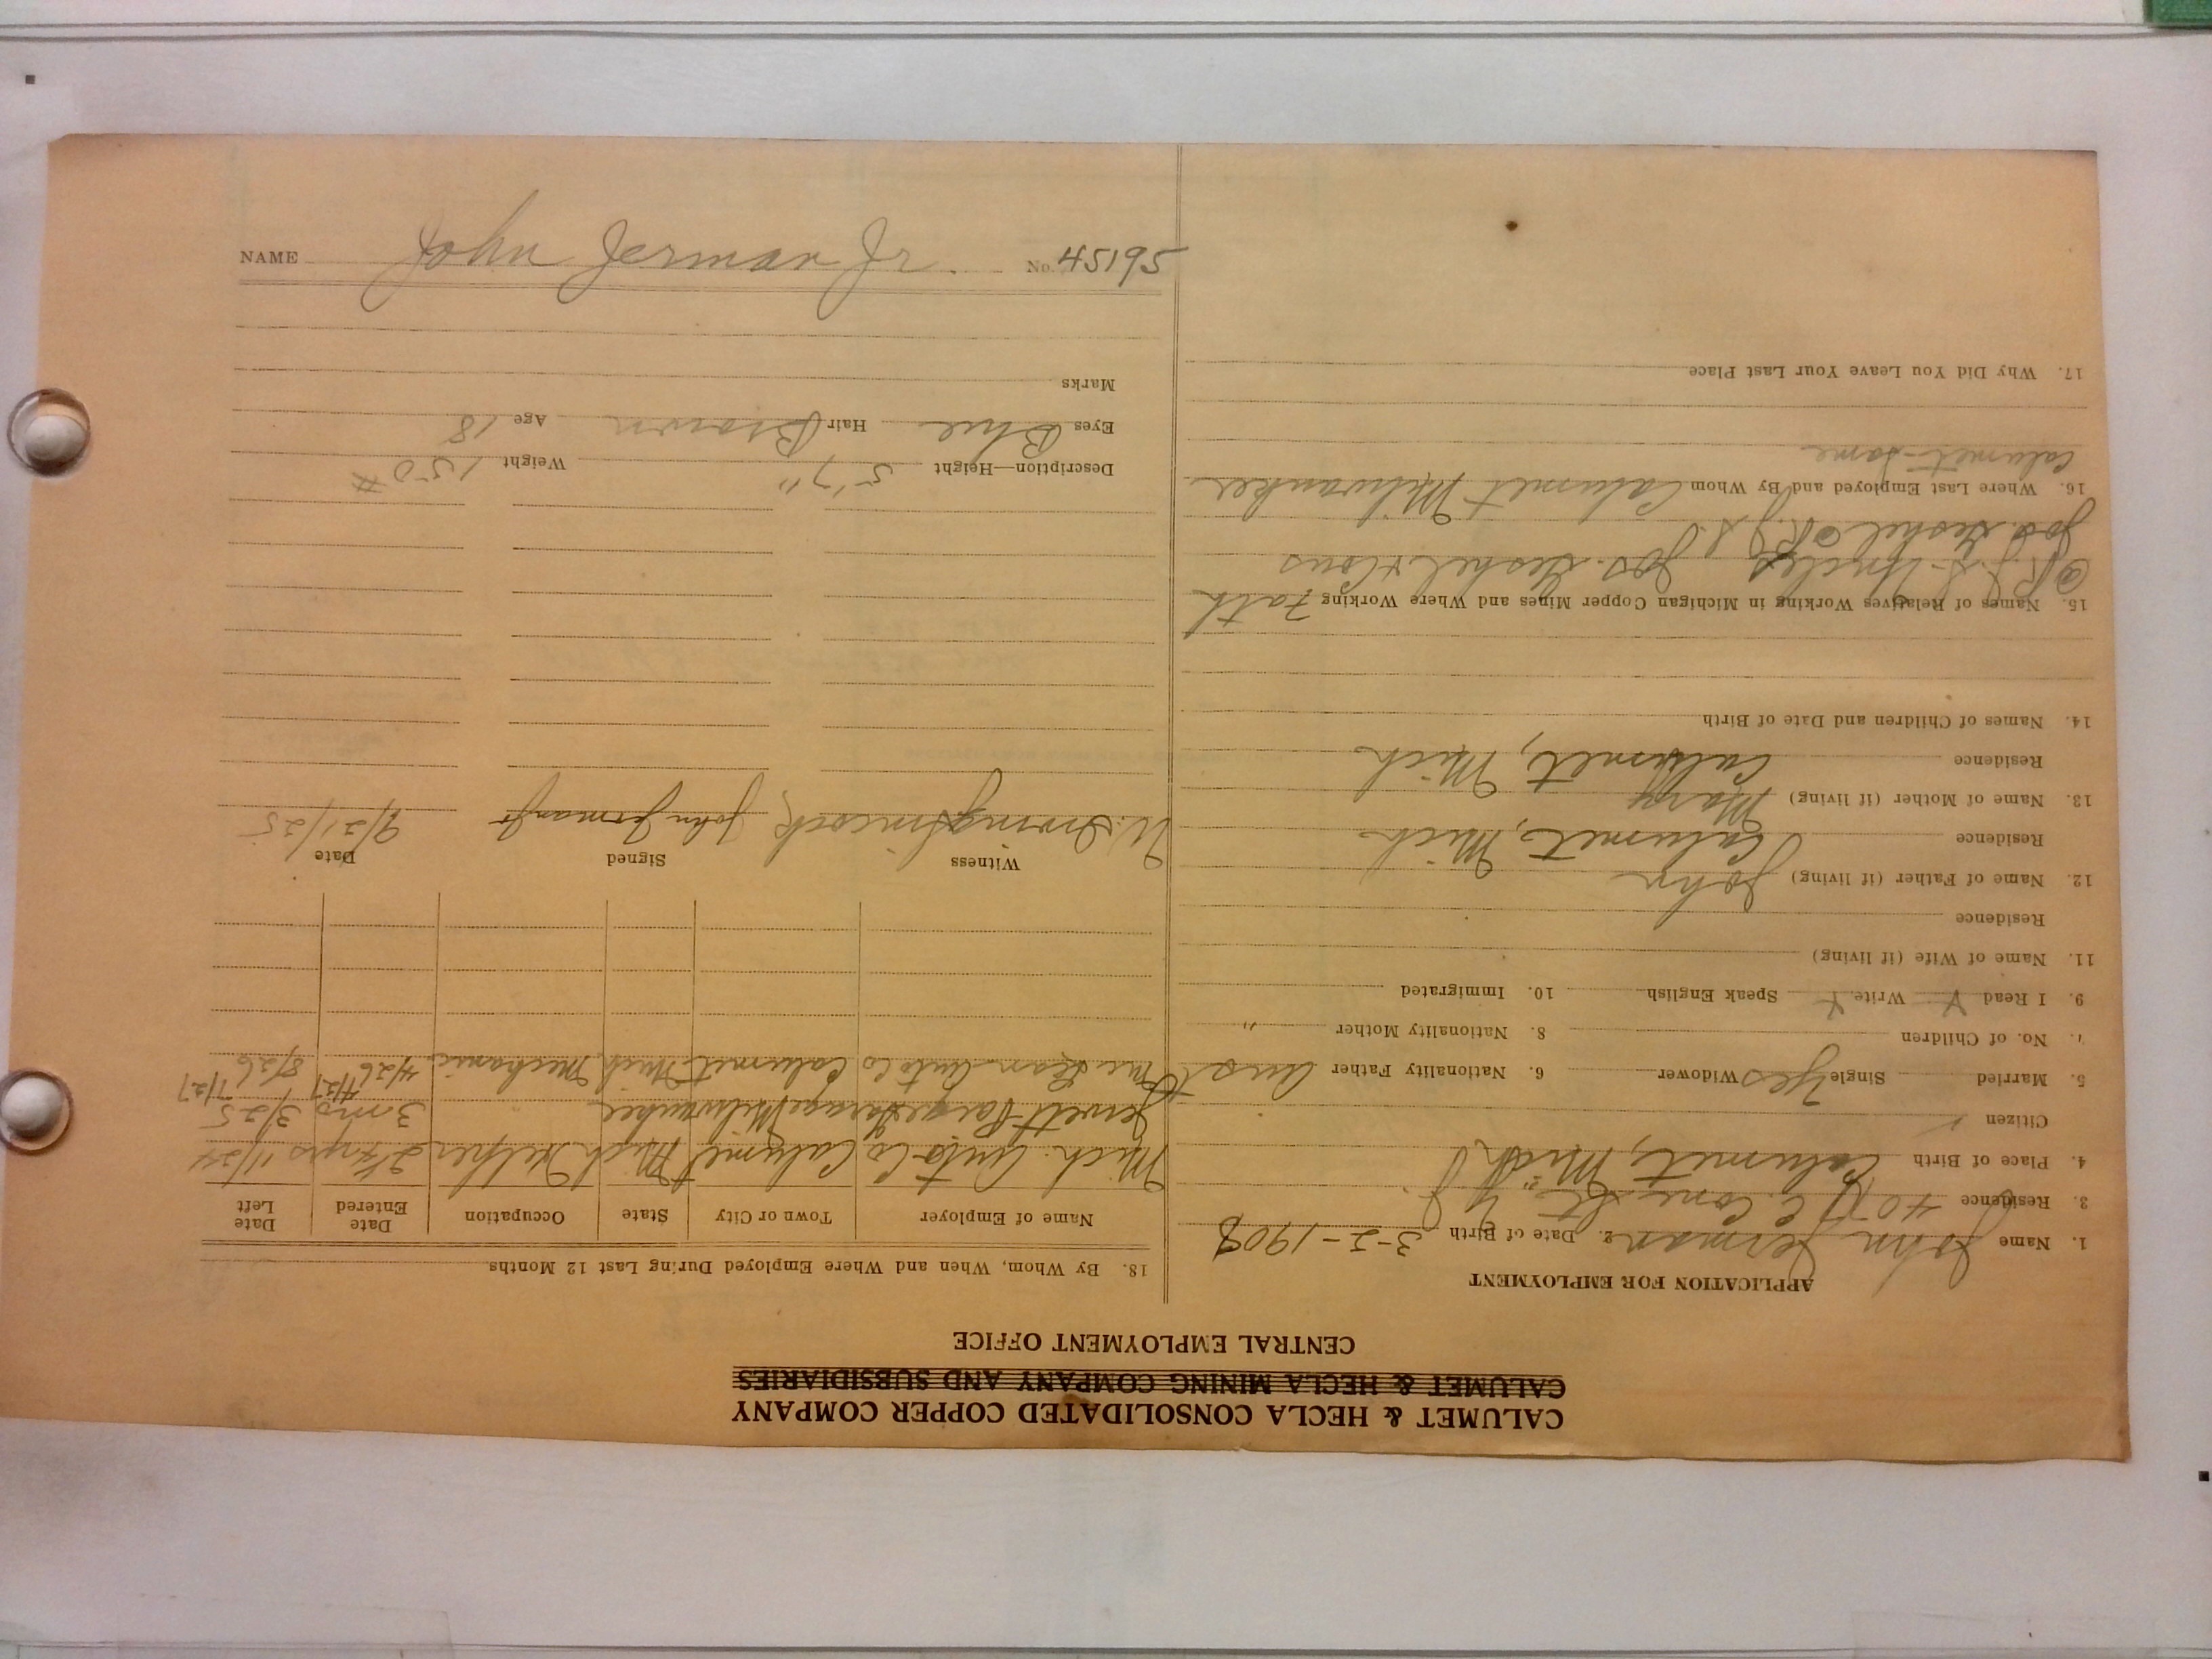 CALUMET & HECLA CONSOLIDATED COPPER COMPANY
CALUMET & HECLA MINING COMPANY AND SUBSIDIARIES
CENTRAL EMPLOYMENT OFFICE
APPLICATION FOR EMPLOYMENT
1. Name John Jerman 2. Date of Birth 3-2-1908
3. Residence 40 C. Cone St
4. Place of Birth Calumet, Mich
Citizen
5. Married Single yes Widower 6. Nationality Father Aust
7. No. of Children 8. Nationality Mother "
9. I Read Y Write Y Speak English 10. Immigrated
11. Name of Wife (if living)
Residence
12. Name of Father (if living) John
Residence Calumet, Mich
13. Name of Mother (if living) Mary
Residence Calumet, Mich
14. Names of Children and Date of Birth
15. Names of Relatives Working in Michigan Copper Mines and Where Working Fath
Uncles Jos. & Cous
Jos.
16. Where Last Employed and By Whom Calumet Milwaukee
Calumet-same
17. Why Did You Leave Your Last Place
18. By Whom, When and Where Employed During Last 12 Months
Name of Employer Town or City State Occupation Date Entered Date Left
Mich. Auto Co Calumet Mich Helper 2 1/4 yrs 11/24
Jewett Paige Garage Milwaukee 3 mo 3/25
4/27 7/27
McLean Auto Co Calumet Mich Mechanic 4/26 8/26
Witness Signed Date
W. Irving John Jerman Jr 9/21/25
Description—Height 5'7" Weight 150#
Eyes Blue Hair Brown Age 18
Marks
NAME John Jerman Jr. No. 45195